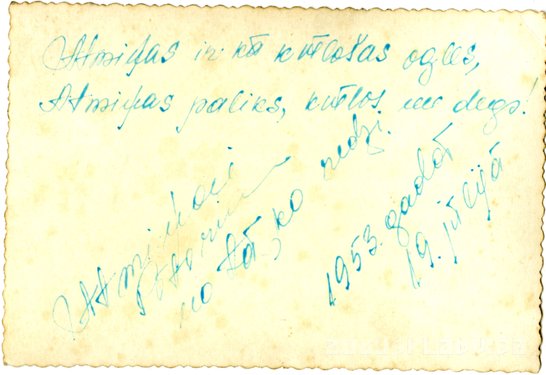 Atmiņas ir kā kvēlošas ogles,
Atmiņas paliks, kvēlos un degs!
Atmiņai
no tā, ko redzi.
1953. gadā
19. jūlijā